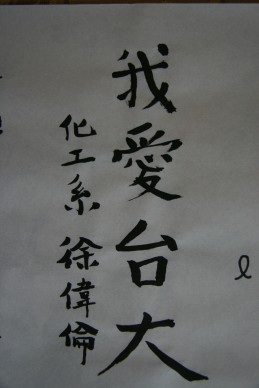 我愛台大
化工系 徐偉倫